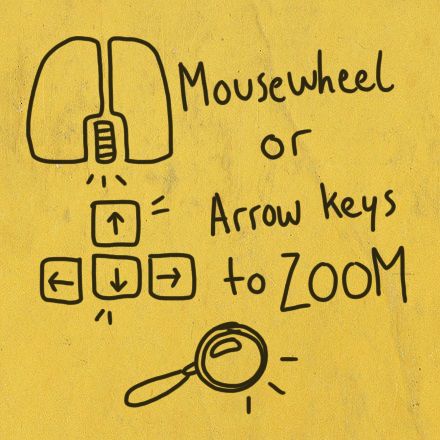 Mousewheel
or
Arrow keys
to ZOOM